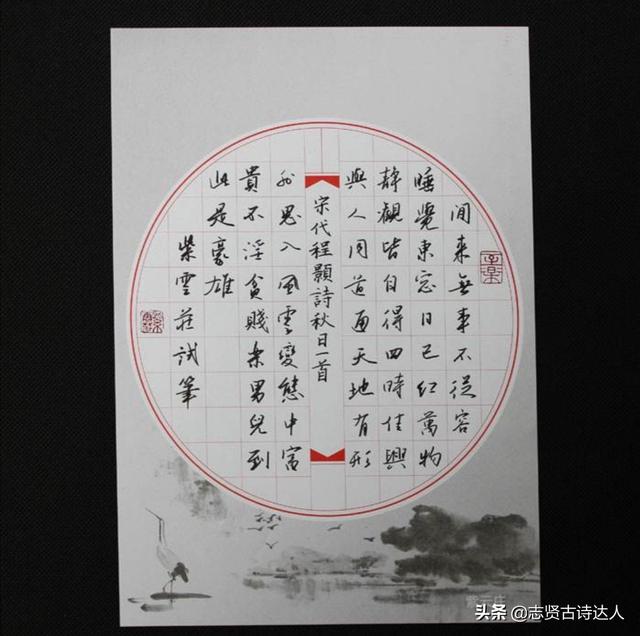 间来無事不從容
睡覺東窓日已红萬物
静觀皆自得四時佳興
與人同道通天地有形
宋代程顥詩秋日一首
外思入風雲變態中富
貴不淫貧賤樂男兒到
此是豪雄
紫雲莊試筆
紫云庄
头条 @志贤古诗达人